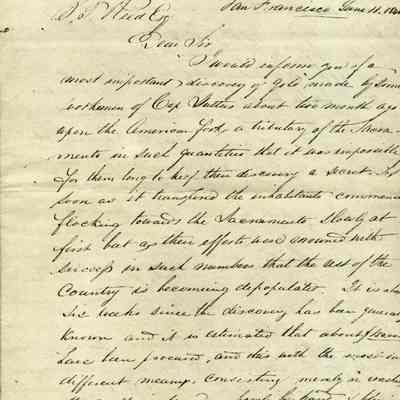 San Francisco June 11. 184
Reed Esq
Dear Sir
I would inform you of a
most important discovery of gold made by some
workmen of Cap Sutters about two month ago
upon the American fork, a tributary of the Sacra-
mento in such quantities that it was impossible
for them long to keep their discovery a secret. As
soon as it transpired the inhabitants commenc
flocking towards the Sacramento slowly at
first but as their efforts were crowned with
success in such numbers that the rest of the
Country is becoming depopulated. It is abo
Six weeks since the discovery has been general
known and it is estimated that about
have been procured, and this with the most in
different means, consisting merely in washi